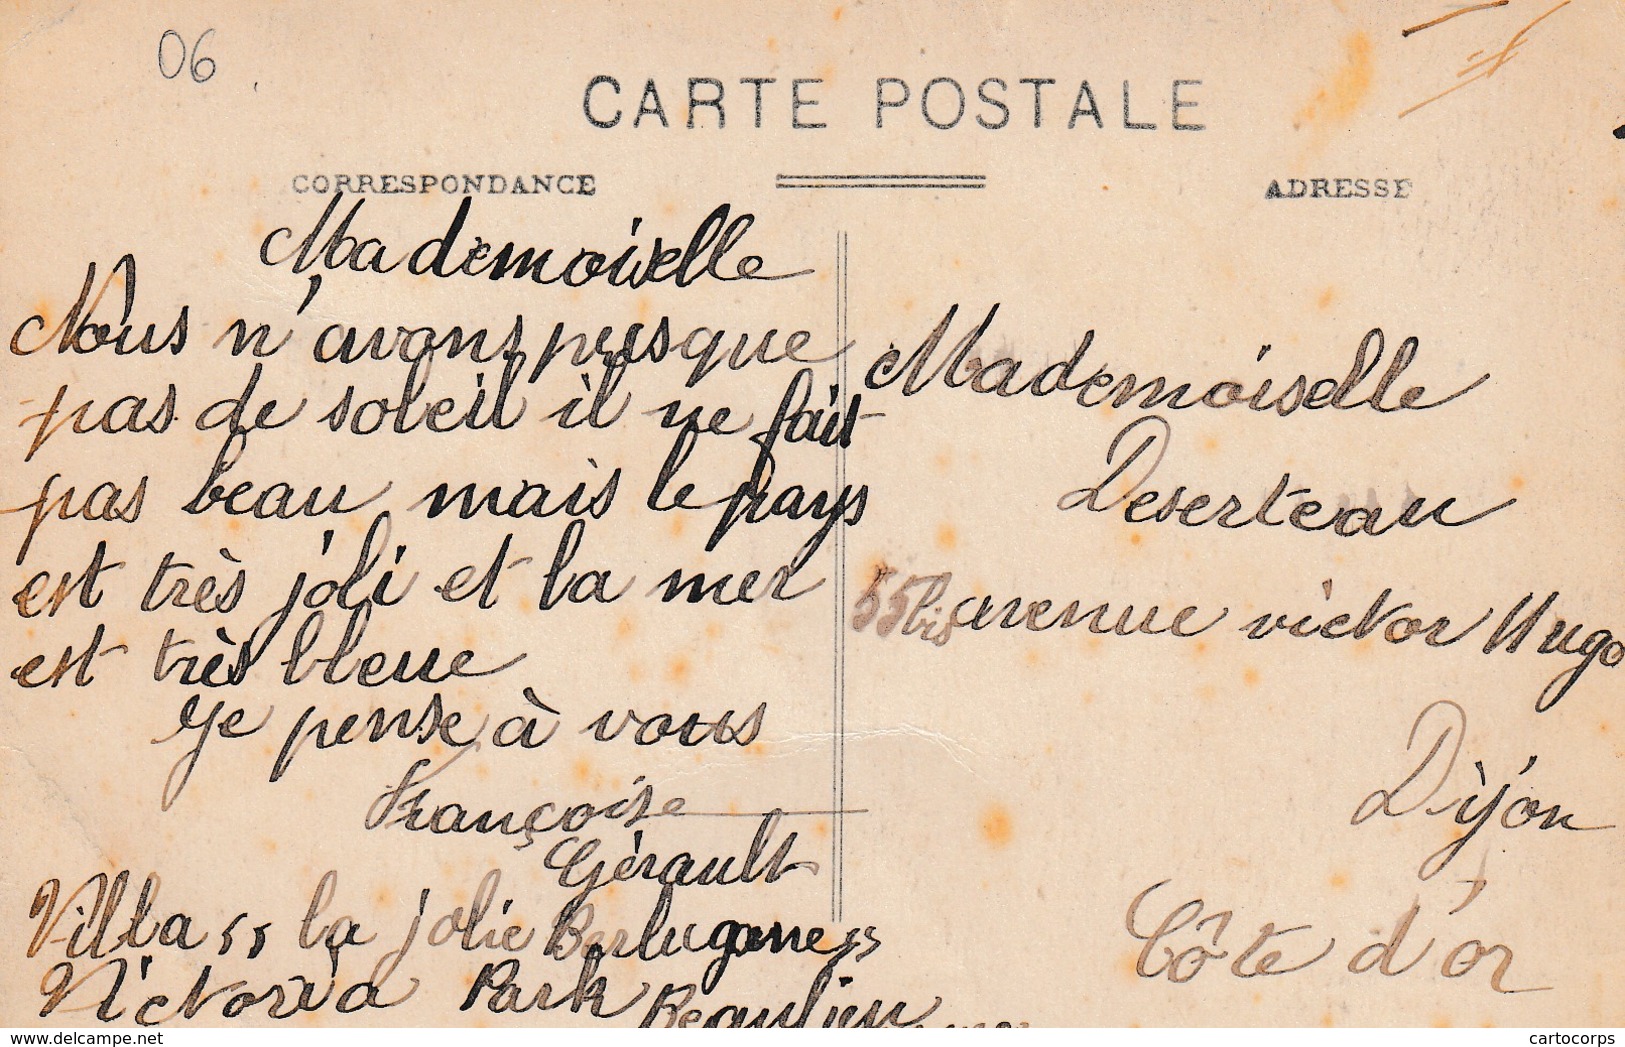 06
CARTE POSTALE
CORRESPONDANCE
ADRESSE
Mademoiselle
Nous n'avons presque
pas de soleil il ne fait
pas beau mais le pays
est très joli et la mer
est très bleue
Je pense à vous
Françoise
Gérault
Villa "la jolie Berlugane"
Victoria Park Beaulieu
Mademoiselle
Deserteau
55bis avenue victor Hugo
Dijon
Côte d'or
delcampe.net
cartocorps